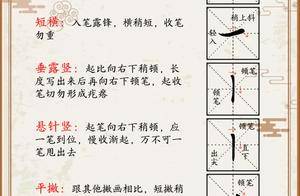 短横：入笔露锋，横稍短，收笔
勿重
稍上斜
轻入
垂露竖：起比向右下稍顿，长
度写出来后再向右下顿笔，起收
笔切勿形成疙瘩
顿笔
顿笔
悬针竖：起笔向右下稍顿，应
一笔到位，慢收渐起，万不可一
笔甩出去
顿笔
直下
出尖
平撇：跟其他撇画相比，短撇稍
顿笔